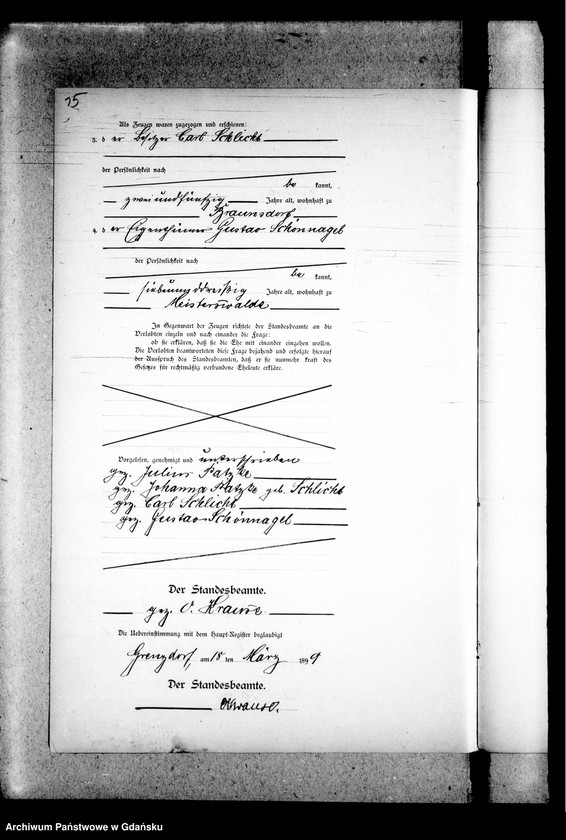 25
Als Zeugen waren zugezogen und erschienen:
3. der Besitzer Carl Schlicht
der Persönlichkeit nach
be kannt,
zweiundfünfzig Jahre alt, wohnhaft zu
Braunsdorf
4. der Eigenthümer Gustav Schönnagel
der Persönlichkeit nach
be kannt,
siebenunddreißig Jahre alt, wohnhaft zu
Meisterswalde
In Gegenwart der Zeugen richtete der Standesbeamte an die
Verlobten einzeln und nach einander die Frage:
ob sie erklären, daß sie die Ehe mit einander eingehen wollen.
Die Verlobten beantworteten diese Frage bejahend und erfolgte hierauf
der Ausspruch des Standesbeamten, daß er sie nunmehr kraft des
Gesetzes für rechtmäßig verbundene Eheleute erkläre.
Vorgelesen, genehmigt und unterschrieben
gez. Julius Patzke
gez. Johanna Patzke geb. Schlicht
gez. Carl Schlicht
gez. Gustav Schönnagel
Der Standesbeamte.
gez. O. Krause
Die Uebereinstimmung mit dem Haupt-Register beglaubigt
Grenzdorf, am 15 ten März 1899
Der Standesbeamte.
OKrause.
Archiwum Państwowe w Gdańsku